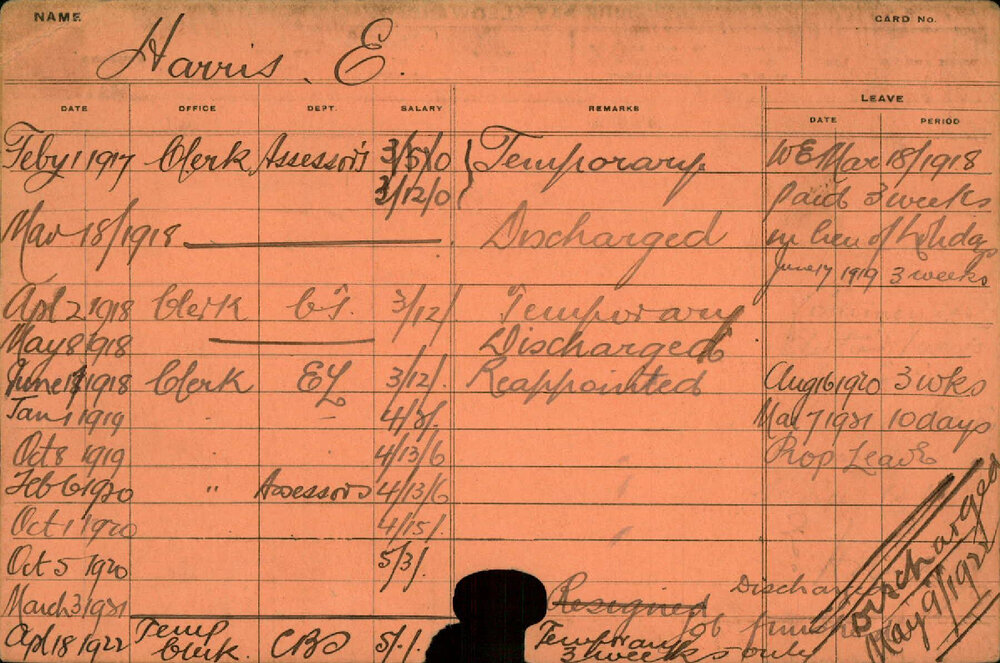 NAME
CARD No.
Harris. E.
DATE OFFICE DEPT. SALARY REMARKS LEAVE
DATE PERIOD
Feby 1 1917 Clerk Assessors 3/5/0 } Temporary WE Mar 18/1918
3/12/0 paid 3 weeks
Mar 18/1918 Discharged in lieu of holidays
June 17 1919 3 weeks
Apl 2 1918 Clerk 3/12/ Temporary
May 8 1918 Discharged
June 1918 Clerk EL 3/12/. Reappointed Aug 16 1920 3 wks
Jan 1 1919 " Mar 7 1921 10 days
Oct 8 1919 4/13/6 Prop Leave
Feb 6 1920 " Assessors 4/13/6
Oct 1 1920 4/15/.
Oct 5 1920 5/3/.
March 3 1921 Resigned
Apl 18 1922 Temp Clerk. CBS 5/./. Temporary 3 weeks only
Discharged
May 9/1922